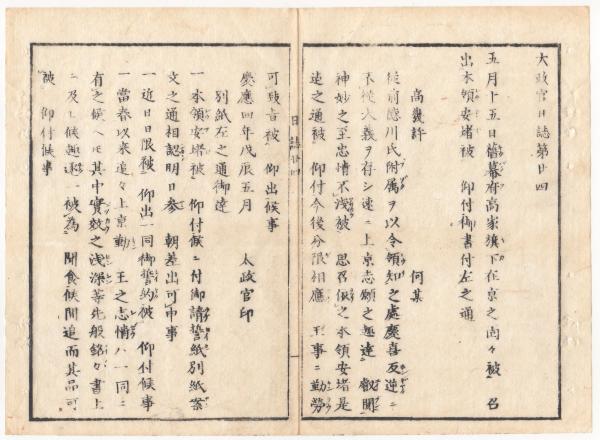 太政官日誌第廿四
五月十五日舊幕府高家旗下在京之面々被 召
出本領安堵被 仰付御書付左之通
高幾許 何某
従前徳川氏附属ヲ以令領知之處慶喜反逆ニ
不従大義ヲ存シ速ニ上京志願之趣達 叡聞
神妙之至忠情不浅被 思召依之本領安堵是
迄之通被 仰付今後分限相應 王事ニ勤労
日誌廿四
可致旨被 仰出候事
慶應四年戊辰五月 太政官印
別紙左之通御達
一本領安堵被 仰付候ニ付御請誓紙別紙案
文之通相認明日参 朝差出可申事
一近日日限被 仰出一同御誓約被 仰付候事
一當春以来追々上京勤 王之志情ハ一同ニ
有之候ヘ圧其中實效之浅深等先般銘々書上
ニ及し候趣逐一被為 聞食候間追而其品可
被 仰付候事